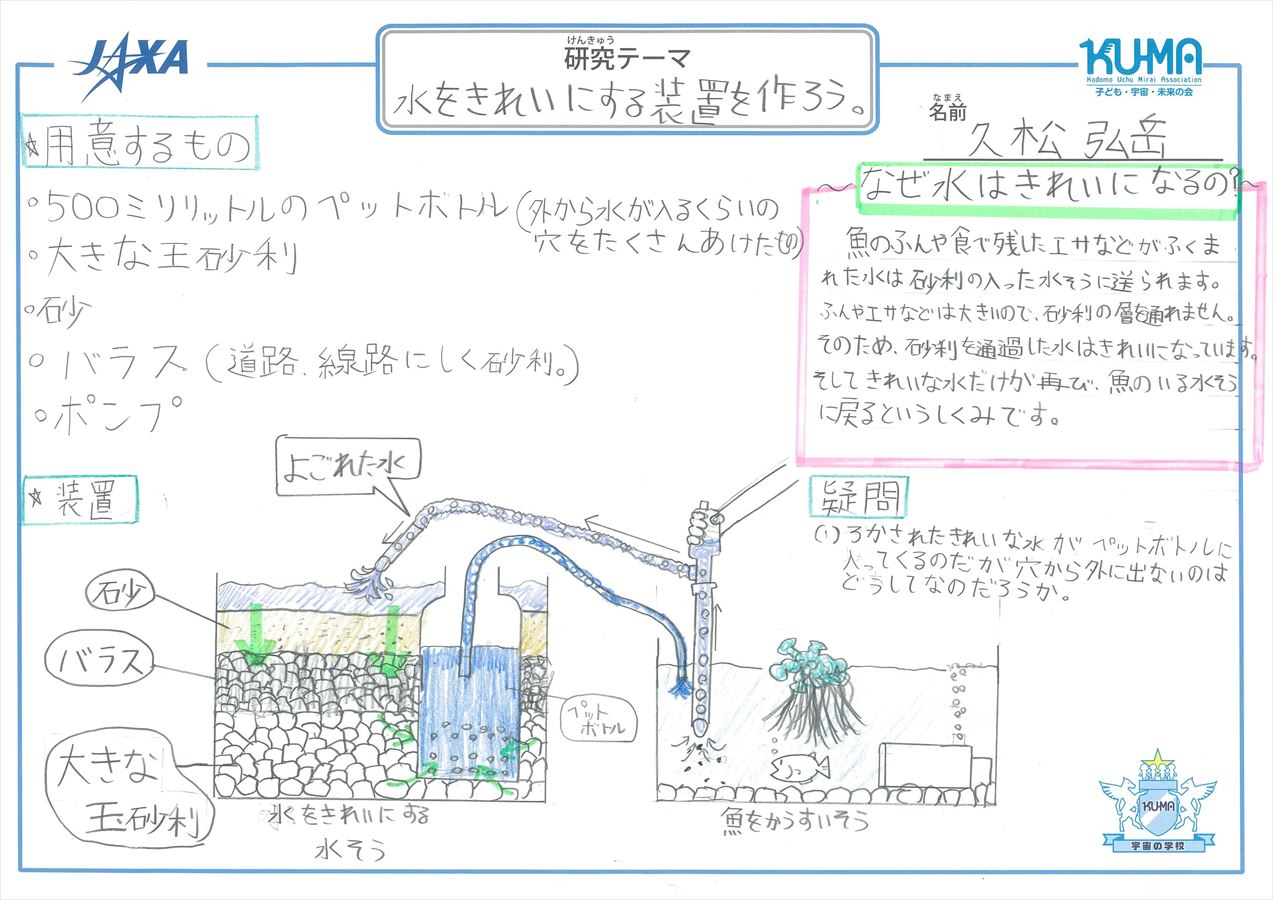 JAXA
けんきゅう
研究テーマ
水をきれいにする装置を作ろう。
KU-MA
Kodomo Uchu Mirai Association
子ども・宇宙・未来の会
なまえ
名前
久松 弘岳
☆用意するもの
・500ミリリットルのペットボトル(外から水が入るくらいの
穴をたくさんあけたもの)
・大きな玉砂利
・砂
・バラス(道路、線路にしく砂利。)
・ポンプ
～なぜ水はきれいになるの?～
魚のふんや食べ残したエサなどがふくま
れた水は砂利の入った水そうに送られます。
ふんやエサなどは大きいので、砂利の層を通れません。
そのため、砂利を通過した水はきれいになっています。
そしてきれいな水だけが再び、魚のいる水そう
に戻るというしくみです。
☆装置
よごれた水
砂
バラス
大きな
玉砂利
ペット
ボトル
水をきれいにする
水そう
魚をかうすいそう
疑問
(1)ろかされたきれいな水がペットボトルに
入ってくるのだが穴から外に出ないのは
どうしてなのだろうか。
KU-MA
宇宙の学校